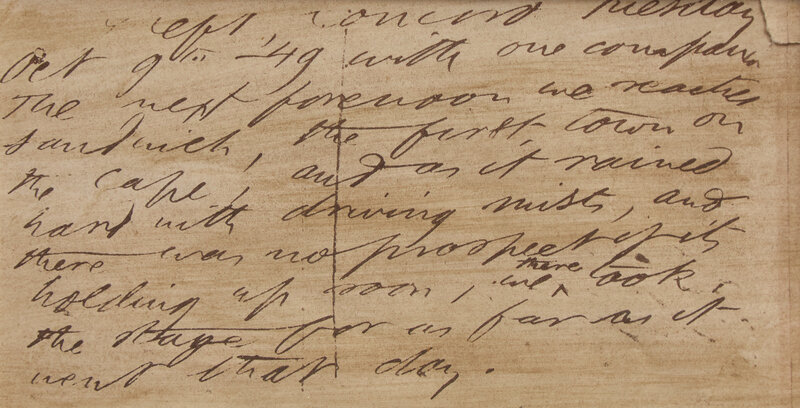 left Concord Tuesday
Oct 9th -49 with one companion
The next forenoon we reached
sandwich, the first town on
the Cape, and as it rained
hard with driving mists, and
there was no prospect of its
holding up soon, we there took
the stage for as far as it
went that day.